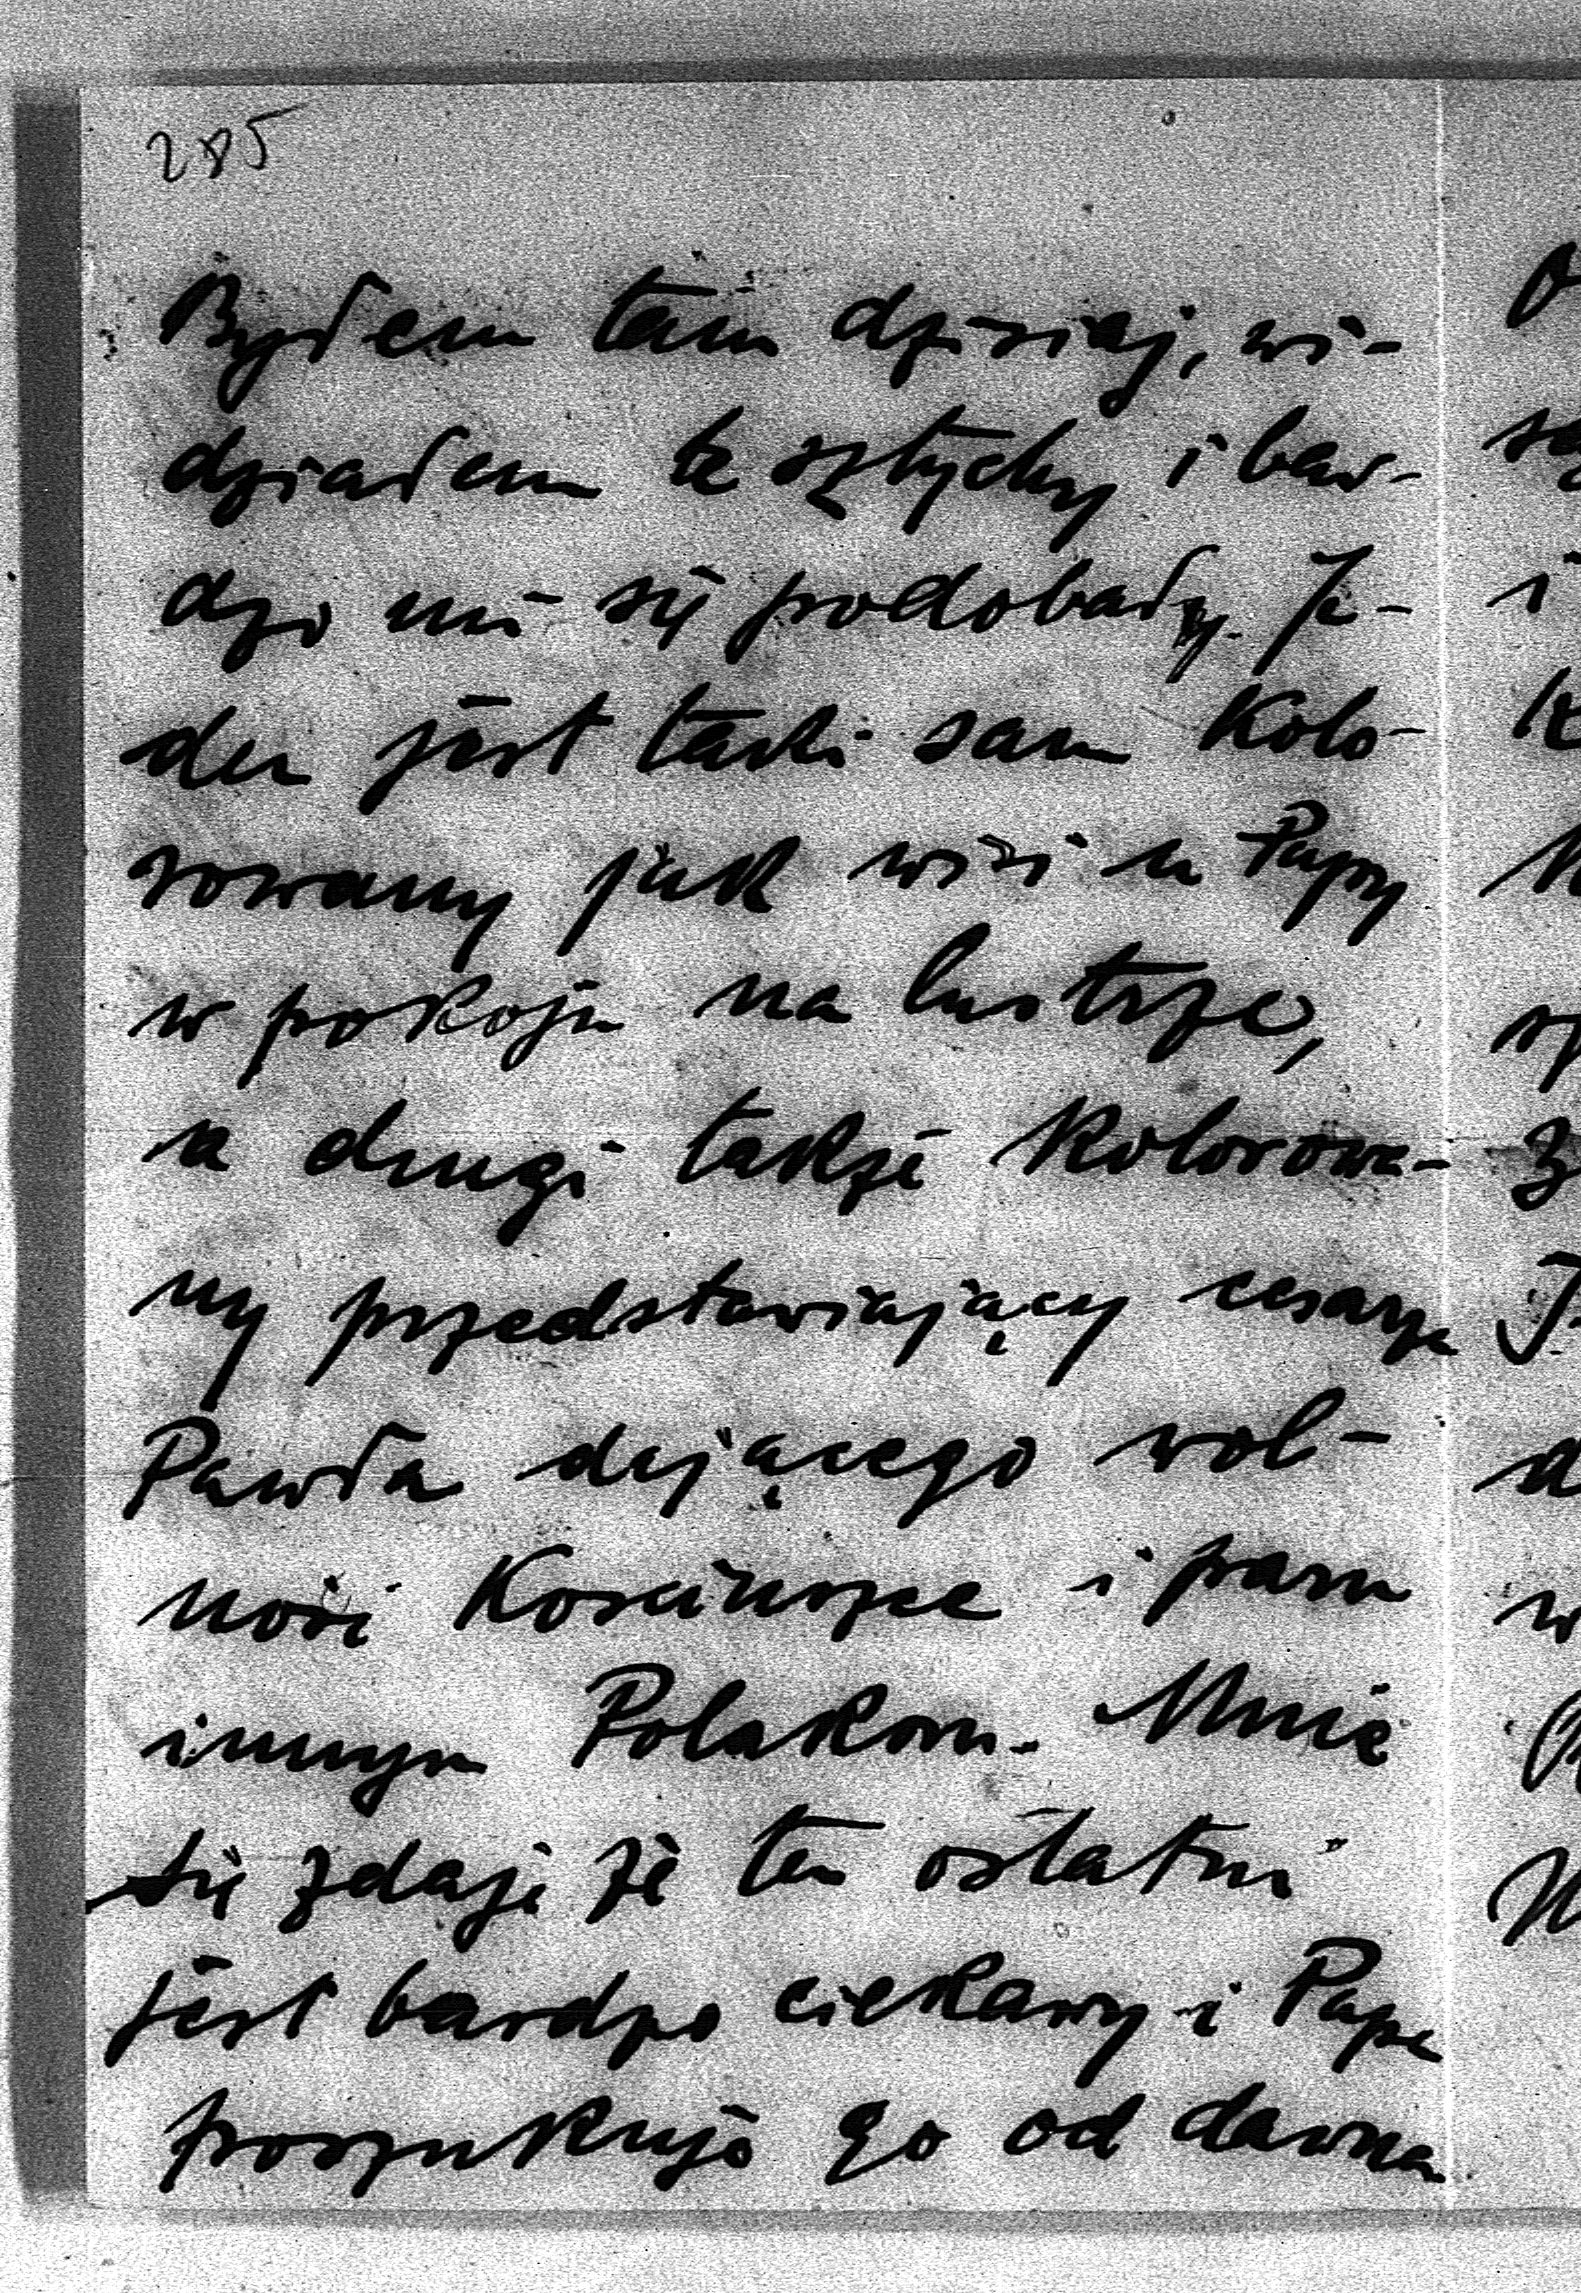 285
Byłem tam dzisiaj, wi-
działem te sztychy i bar-
dzo mi się podobały. Je-
den jest taki sam kolo-
rowany jak wisi u Papy
w pokoju na lustrze,
a drugi także kolorowa-
ny przedstawiający cesarza
Pawła dającego wol-
ność Kościuszce i paru
innym Polakom. Mnie
się zdaje że ten ostatni
jest bardzo ciekawy i Papa
poszukuje go od dawna